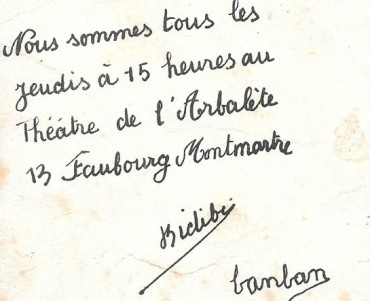 Nous sommes tous les
jeudis à 15 heures au
Théâtre de l'Arbalète
13 Faubourg Montmartre
Bidibi
banban